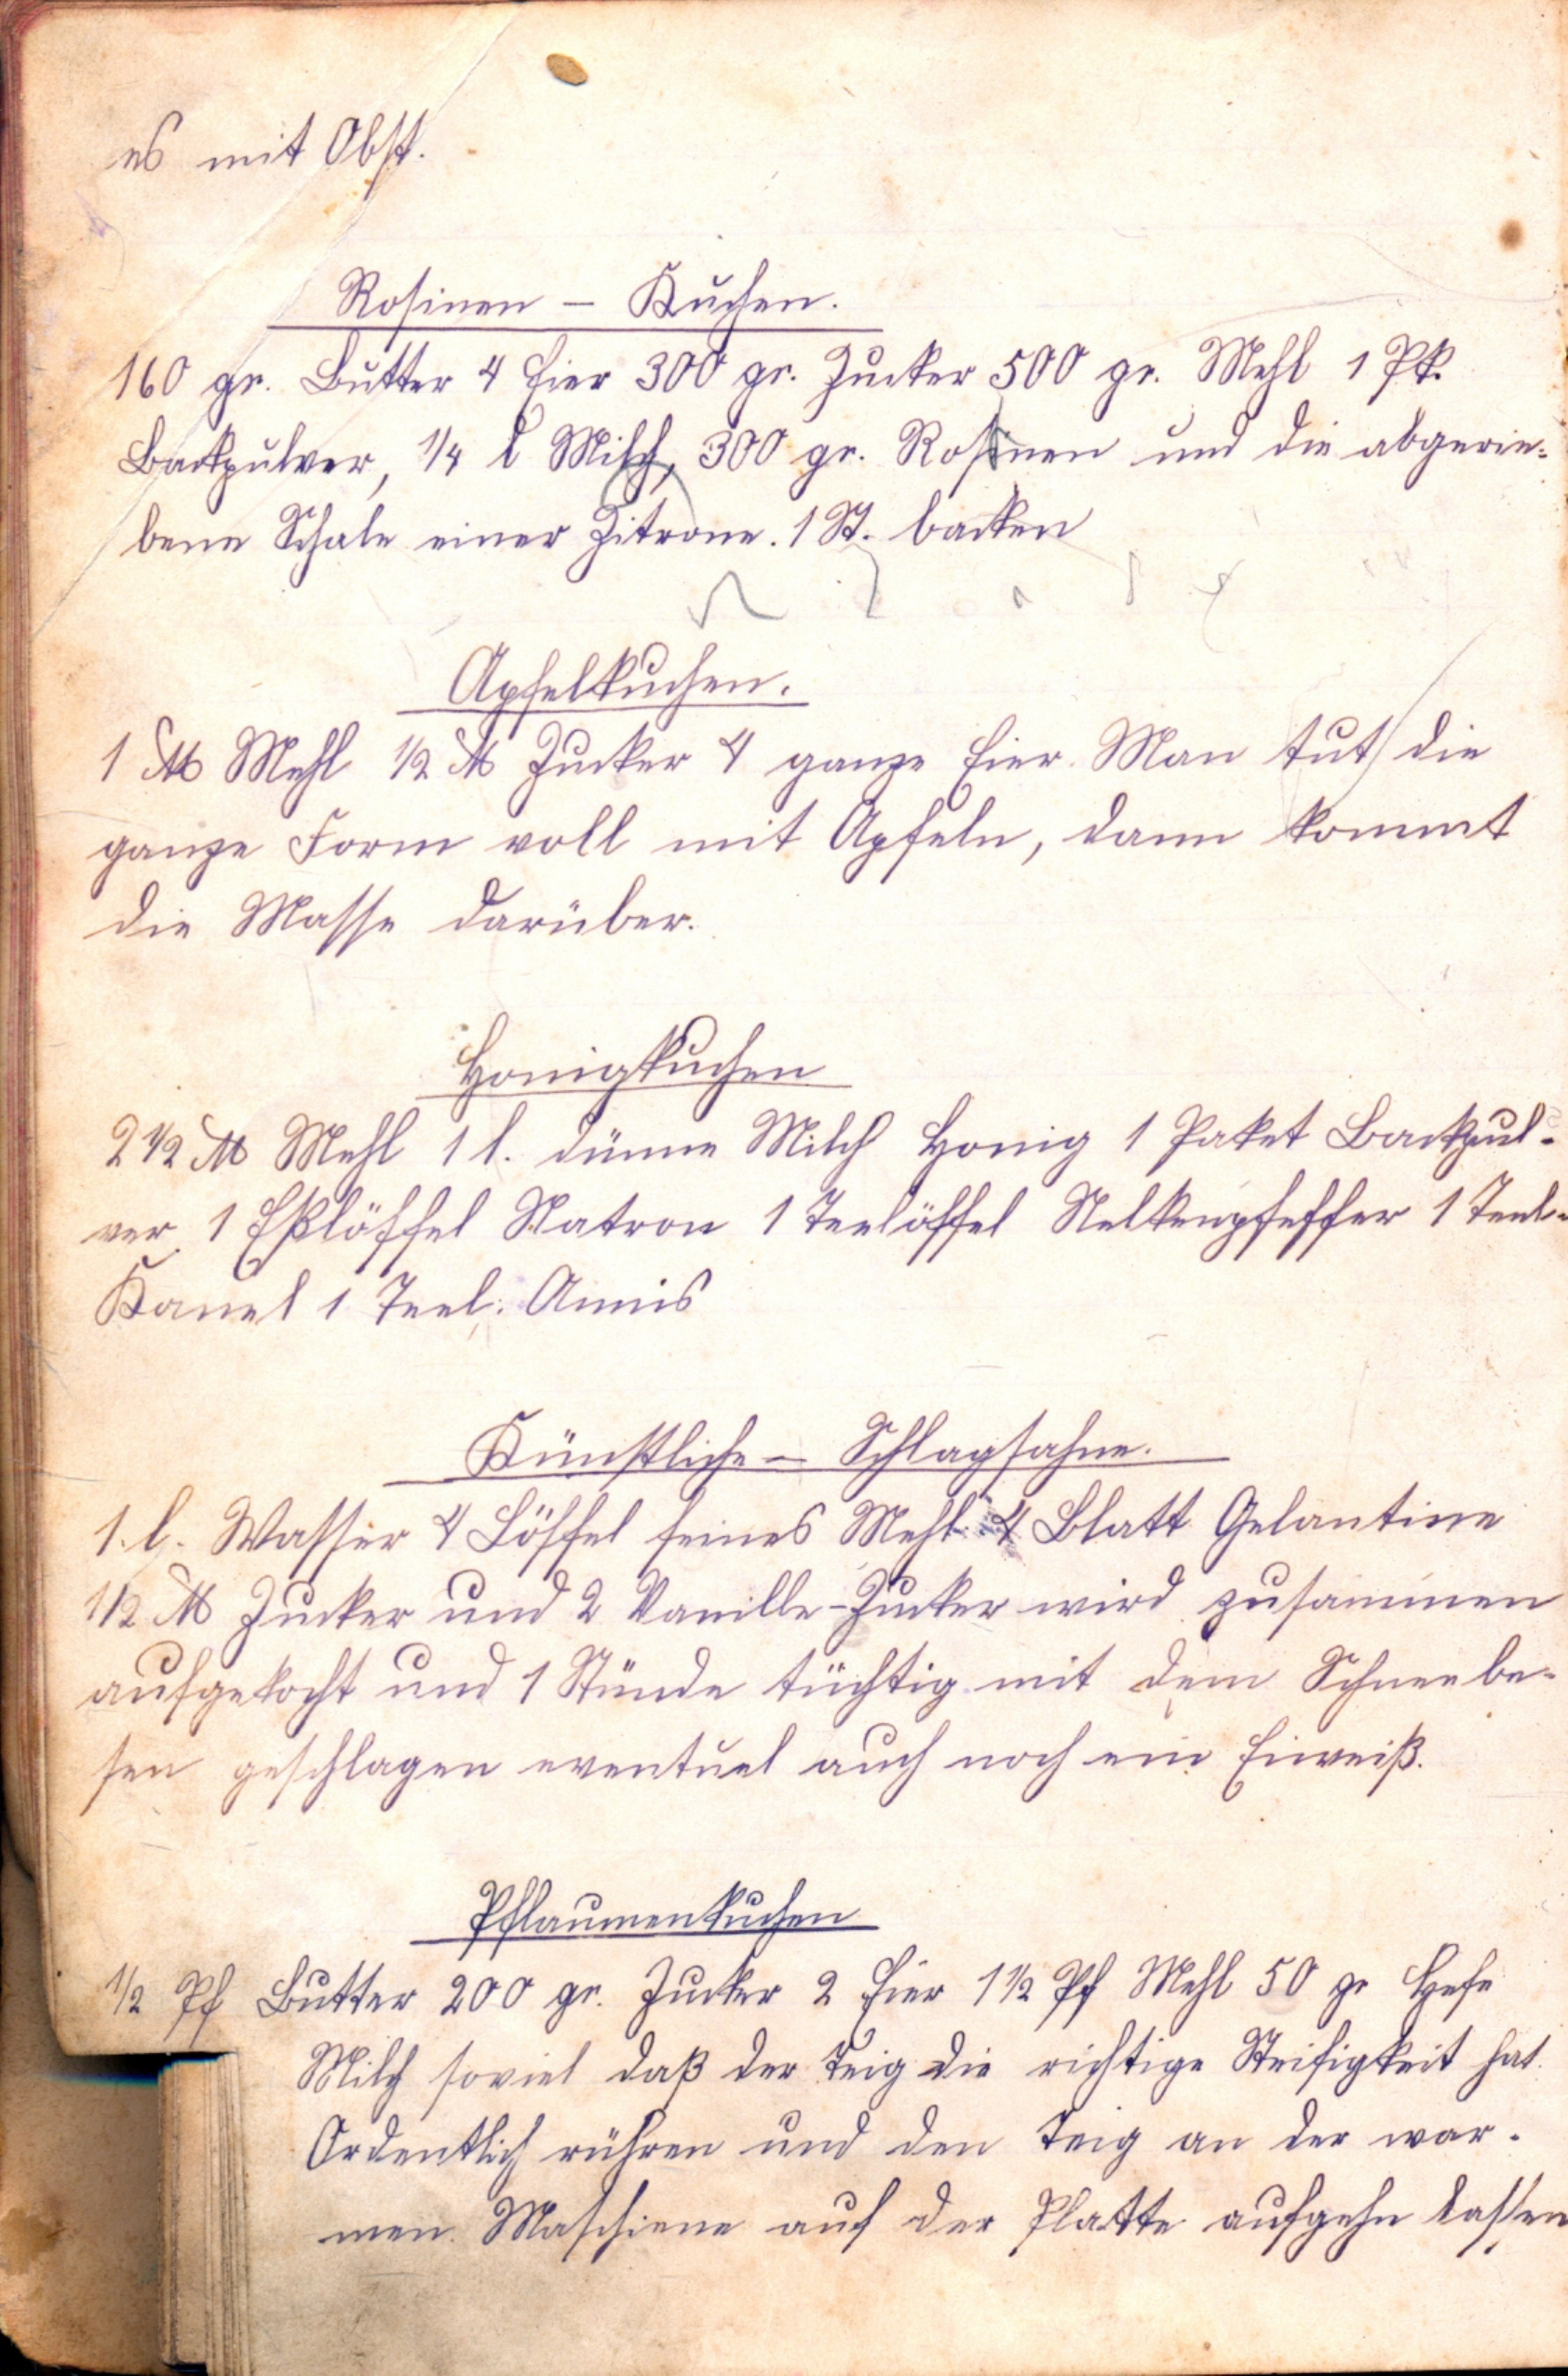 es mit Obst.
Rosinen – Kuchen.
160 gr. Butter 4 Eier 300 gr. Zucker 500 gr. Mehl 1 Pk.
Backpulver, 1/4 l Milch, 300 gr. Rosinen und die abgerie-
bene Schale einer Zitrone. 1 St. backen
Apfelkuchen.
1 ℔ Mehl 1/2 ℔ Zucker 4 ganze Eier. Man tut die
ganze Form voll mit Apfeln, dann kommt
die Masse darüber.
Honigkuchen
2 1/2 ℔ Mehl 1 l. dünne Milch Honig 1 Paket Backpul-
ver 1 Eßlöffel Natron 1 Teelöffel Nelkenpfeffer 1 Teel.
Kanel 1 Teel. Annis
Künstliche – Schlagsahne.
1. l. Wasser 4 Löffel feines Mehl 4 Blatt Gelantine
1/2 ℔ Zucker und 2 Vanille-Zucker wird zusammen
aufgekocht und 1 Stunde tüchtig mit dem Schneebe-
sen geschlagen eventuel auch noch ein Eiweiß.
Pflaumenkuchen
1/2 Pf Butter 200 gr. Zucker 2 Eier 1 1/2 Pf Mehl 50 gr Hefe
Milch soviel daß der Teig die richtige Steifigkeit hat.
Ordentlich rühren und den Teig an der war-
men Maschiene auf der Platte aufgehn lassen